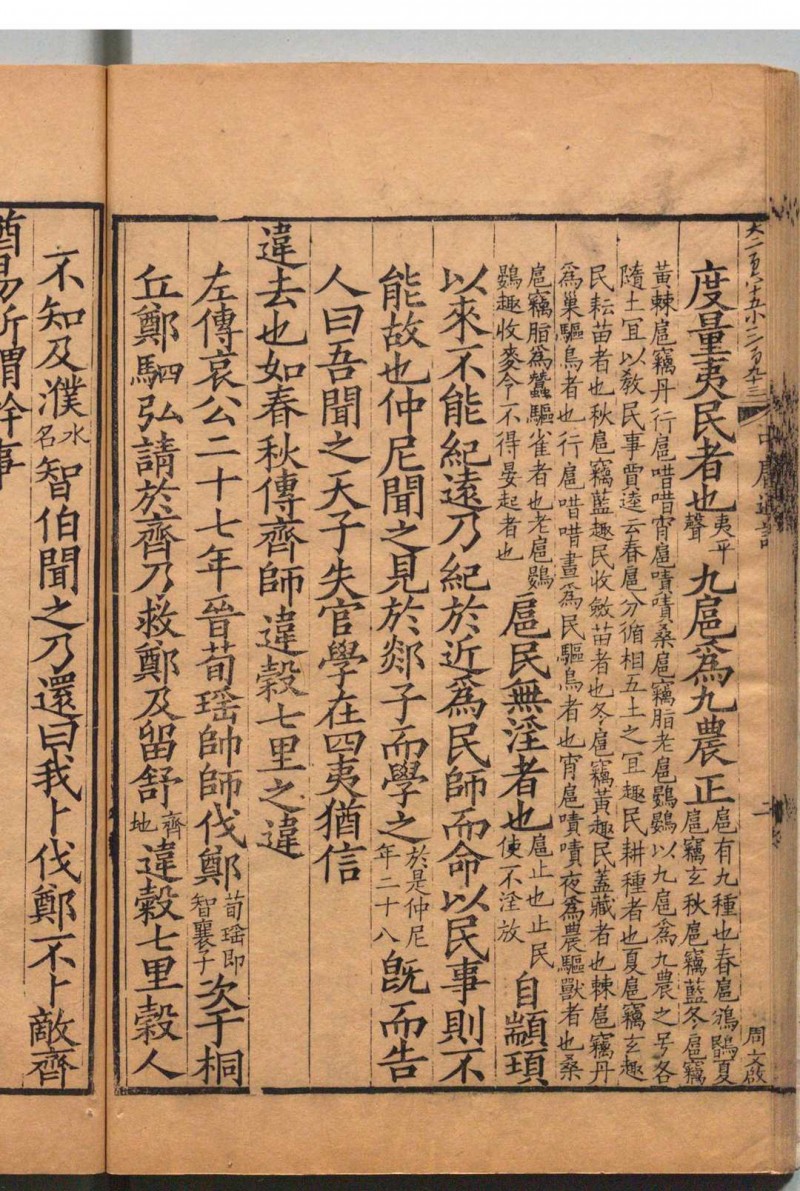 大二百六十五小三百九十三 二 周文啟
度量夷民者也夷平聲九扈為九農正扈有九種也春扈鳻鶞夏扈竊玄秋扈竊藍冬扈竊
黃棘扈竊丹行扈唶唶宵扈嘖嘖桑扈竊脂老扈鷃鷃以九扈為九農之号各
隨土宜以教民事賈逵云春扈分循相五土之宜趣民耕種者也夏扈竊玄趣
民耘苗者也秋扈竊藍趣民收斂苗者也冬扈竊黃趣民蓋藏者也棘扈竊丹
為巢驅鳥者也行扈唶唶晝為民驅鳥者也宵扈嘖嘖夜為農驅獸者也桑
扈竊脂為蠶驅雀者也老扈鷃鷃趣收麥令不得晏起者也扈民無淫者也扈止也止民使不淫放自顓頊
以來不能紀遠乃紀於近為民師而命以民事則不
能故也仲尼聞之見於郯子而學之於是仲尼年二十八既而告
人曰吾聞之天子失官學在四夷猶信
違去也如春秋傳齊師違穀七里之違
左傳哀公二十七年晉荀瑤帥師伐鄭荀瑤即智襄子次于桐
丘鄭駟弘請於齊乃救鄭及留舒齊地違穀七里穀人
不知及濮水名智伯聞之乃還曰我卜伐鄭不卜敵齊
易所謂幹事